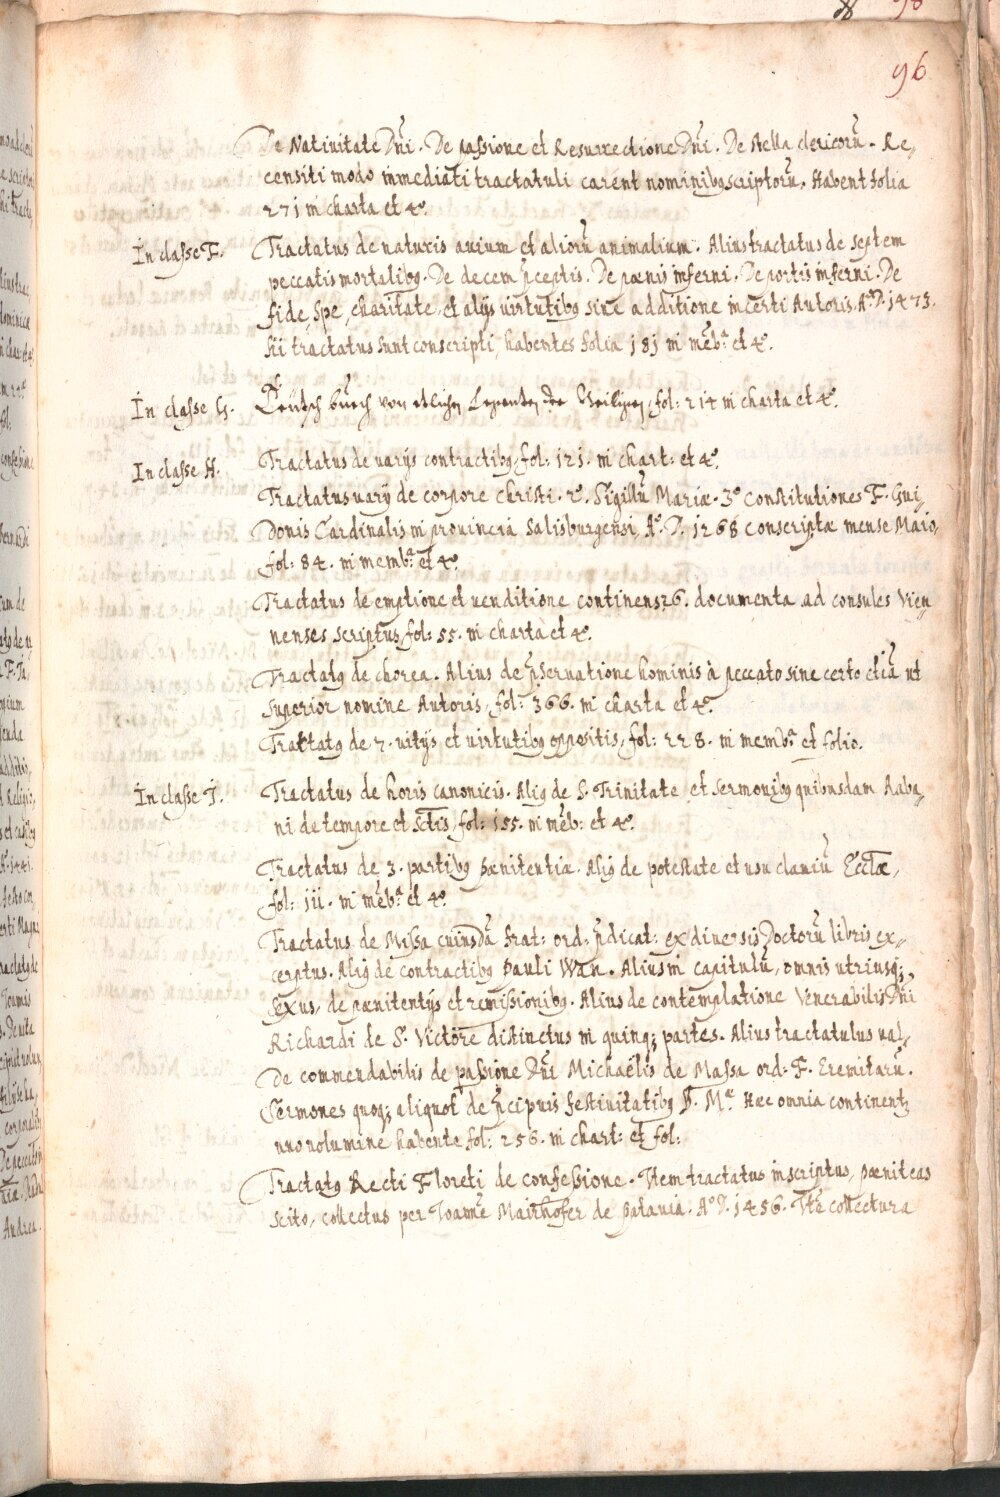 96
De Natiuitate Dn̄i. De passione et Resurrectione Dn̄i. De stella clericorū. Re,
censiti modo immediati tractatuli carent nominibꝫ scriptorū. Habent folia
271 in charta et 4º.
In classe F. Tractatus de naturis auium et aliorū animalium. Alius tractatus de septem
peccatis mortalibꝫ. De decem p̄ceptis. De pœnis inferni. De portis inferni. De
fide, spe, charitate, et alijs uirtutibꝫ sine additione incerti Autoris. Aº. D. 1473.
hi tractatus sunt conscripti, habentes folia 181 in mēb.ª et 4º.
In classe G. Teutsch buech von etlichen Legenden der Heiligen, fol: 214 in charta et 4º.
In classe H. Tractatus de uarijs contractibꝫ, fol: 121. in chart: et 4º.
Tractatus uarij de corpore Christi. 2º. Sigillū Mariæ. 3º Constitutiones F. Gui,
Donis Cardinalis in prouincia Salisburgensi, Aº. D. 1268 conscriptæ mense Maio,
fol: 84. in memb.ª et 4º.
Tractatus de emptione et uenditione continens 26. documenta ad consules Vien,
nenses scriptus, fol: 55. in charta et 4º.
Tractatꝫ de chorea. Alius de p̄seruatione hominis à peccato sine certo etiā ut
superior nomine Autoris, fol: 366. in charta et 4º.
Tractatꝫ de 7. uitijs et uirtutibꝫ oppositis, fol: 228. in memb.ª et folio.
In classe I. Tractatus de horis canonicis. Aliꝫ de S. Trinitate, et sermonibꝫ quibusdam Raba,
ni de tempore et Sctīs, fol: 155. in mēb: et 4º.
Tractatus de 3. partibꝫ pænitentiæ. Aliꝫ de potestate et usu clauiū Ecclæ,
fol: 111. in mēb.ª et 4º.
Tractatus de Missa cuiusdā frat: ord: p̄dicat: ex diuersis Doctorū libris ex,
cerptus. Aliꝫ de contractibꝫ Pauli Wan. Alius in capitulū, omnis utriusqꝫ
sexus, de pænitentijs et remissionibꝫ. Alius de contemplatione Venerabilis Dn̄i
Richardi de S. Victore distinctus in quinqꝫ partes. Alius tractatulus ual,
de commendabilis de passione Dn̄i Michaëlis de Massa ord: F. Eremitarū.
Sermones quoqꝫ aliquot de p̄cipuis festiuitatibꝫ B. M.ª Hæc omnia continentꝫ
uno uolumine habente fol: 256. in chart: et fol:
Tractatꝫ Recti Floreti de confessione. Item tractatus inscriptus, pæniteas
scito, collectus per Joanne Mairhofer de patauia. Aº. D. 1456. Itē collectura